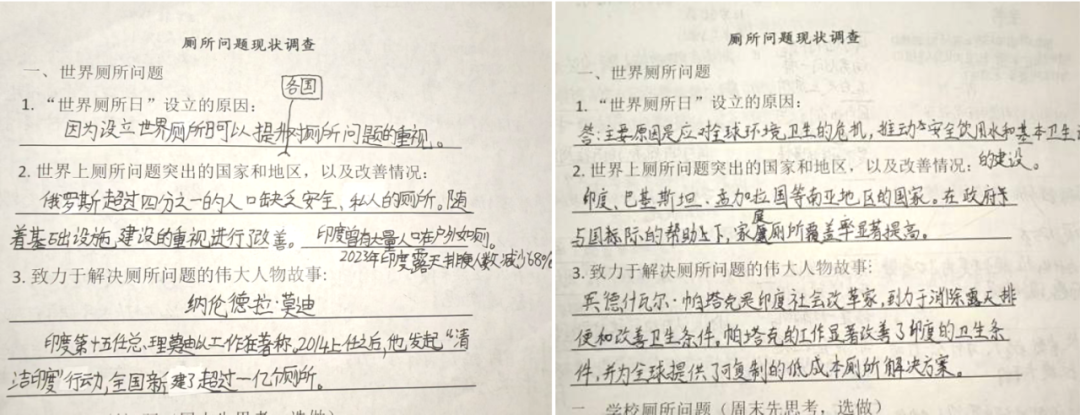 厕所问题现状调查
一、世界厕所问题
各国
1.“世界厕所日”设立的原因：
因为设立世界厕所日可以提升对厕所问题的重视。
2.世界上厕所问题突出的国家和地区，以及改善情况：
俄罗斯超过四分之一的人口缺乏安全、私人的厕所。随
着基础设施建设的重视进行了改善。印度曾有大量人口在户外如厕。
2023年印度露天排便人数减少68%
3.致力于解决厕所问题的伟大人物故事：
纳伦德拉·莫迪
印度第十五任总理莫迪以工作狂著称。2014上任之后,他发起“清
洁印度”行动,全国新建了超过一亿个厕所。
厕所问题现状调查
一、世界厕所问题
1.“世界厕所日”设立的原因：
答:主要原因是应对全球环境卫生的危机，推动安全饮用水和基本卫生
的建设。
2.世界上厕所问题突出的国家和地区，以及改善情况：
印度、巴基斯坦、孟加拉国等南亚地区的国家。在政府
与国际的帮助之下,家庭厕所覆盖率显著提高。
3.致力于解决厕所问题的伟大人物故事：
宾德什瓦尔·帕塔克是印度社会改革家,致力于消除露天排
便和改善卫生条件。帕塔克的工作显著改善了印度的卫生条
件,并为全球提供了可复制的低成本厕所解决方案。
学校厕所问题（周末先思考，选做）